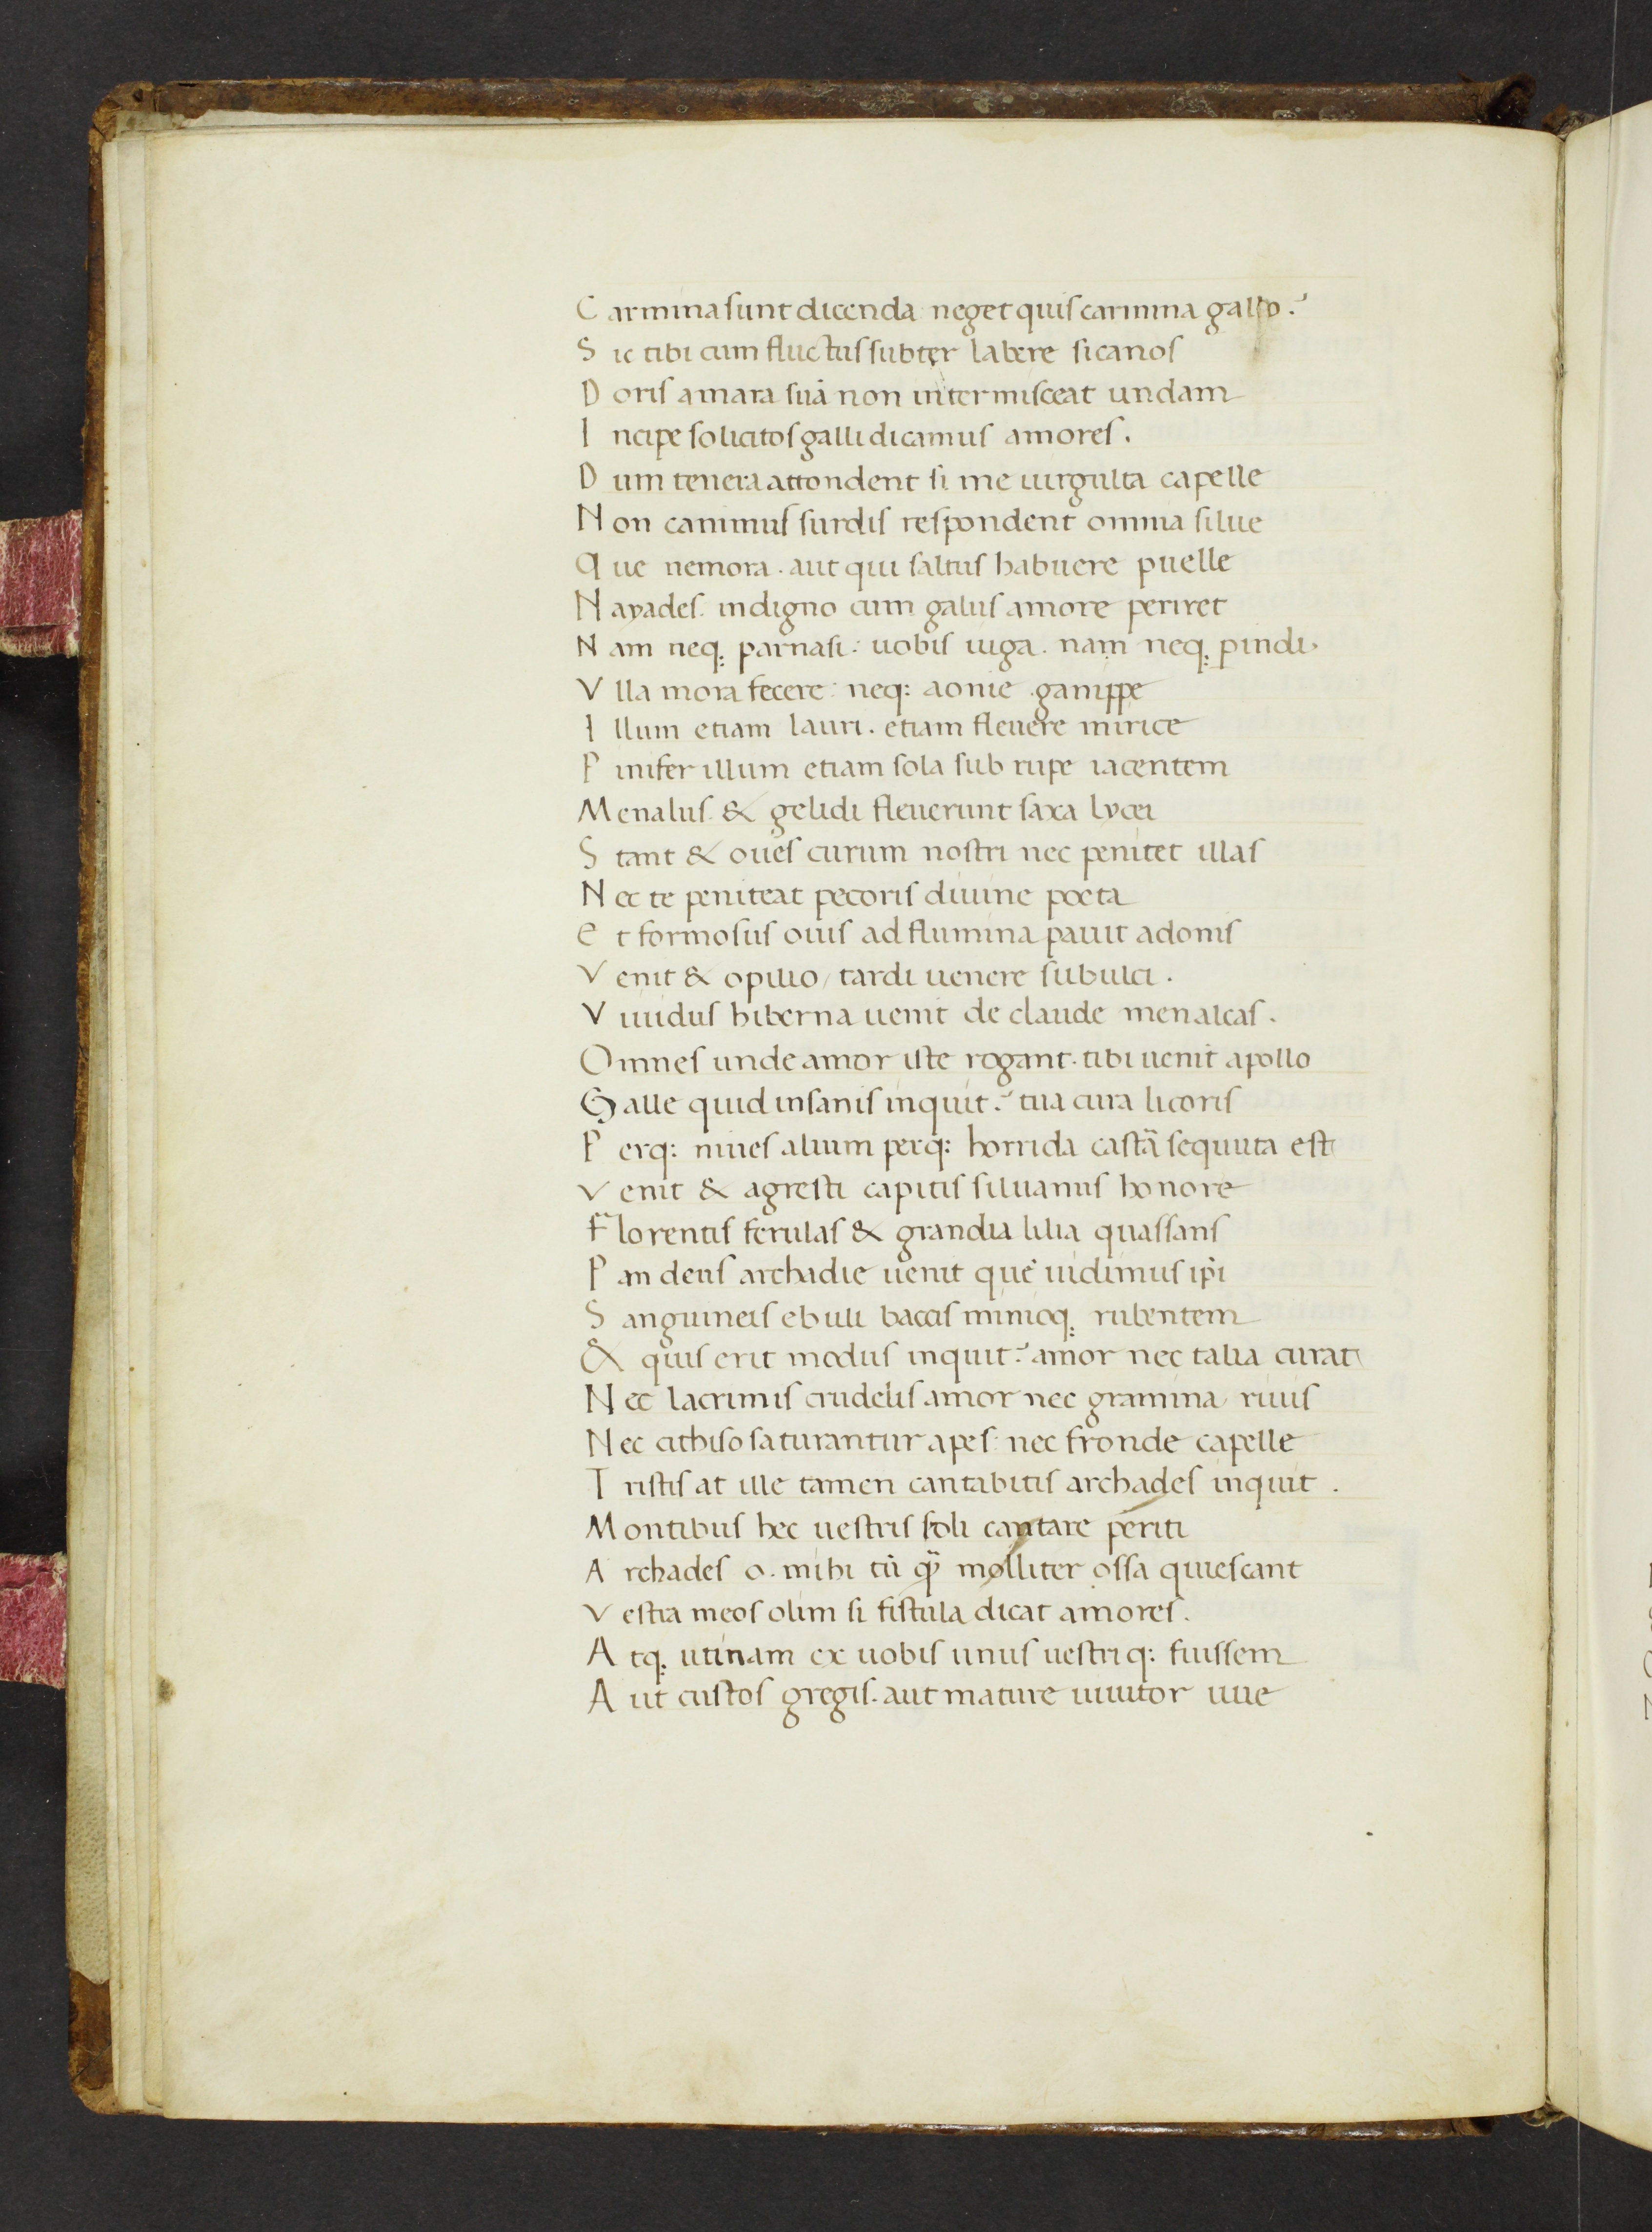 Carmina sunt dicenda neget quis carmina gallo.
Sic tibi cum fluctus subter labere sicanos
Doris amara suā non intermisceat undam
Incipe solicitos galli dicamus amores.
Dum tenera attondent si me uirgulta capelle
Non canimus surdis respondent omnia silue
Que nemora. aut qui saltus habuere puelle
Nayades. indigno cum galus amore periret
Nam neq; parnasi: uobis iuga. nam neq; pindi.
Vlla mora fecere: neq: aonie .ganippe
Illum etiam lauri. etiam fleuere mirice
Pinifer illum etiam sola sub rupe iacentem
Menalus. & gelidi fleuerunt saxa lycei
Stant & oues curum nostri nec penitet illas
Nec te peniteat pecoris diuine poeta
Et formosus ouis ad flumina pauit adonis
Venit & opilio, tardi uenere subulci.
Vuidus hiberna uenit de claude menalcas.
Omnes unde amor iste rogant. tibi uenit apollo
Galle quid insanis inquit.? tua cura licoris
Perq: niues alium perq: horrida castā sequuta est
Venit & agresti capitis siluanus honore
Florentis ferulas & grandia lilia quassans
Pan deus archadie uenit quē uidimus ip̄i
Sanguineis ebuli baccis minioq; rubentem
& quis erit modus inquit.? amor nec talia curat
Nec lacrimis crudelis amor nec gramina riuis
Nec cithiso saturantur apes. nec fronde capelle
Tristis at ille tamen cantabitis archades inquit.
Montibus hec uestris soli cantare periti
Archades o. mihi tū q̄ molliter ossa quiescant
Vestra meos olim si fistula dicat amores.
Atq; utinam ex uobis unus uestriq: fuissem
Aut custos gregis. aut mature uiuitor uue